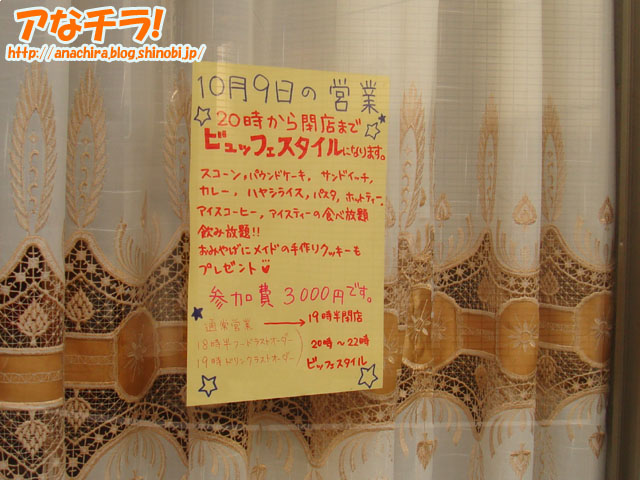 アなチラ!
http://anachira.blog.shinobi.jp/
10月9日の営業
20時から閉店まで
ビュッフェスタイルになります。
スコーン,パウンドケーキ,サンドイーチ,
カレー,ハヤシライス,パスタ,ホットティー,
アイスコーヒー,アイスティーの食べ放題
飲み放題!!
おみやげにメイドの手作りクッキーも
プレゼント
参加費3000円です。
通常営業 → 19時半閉店
18時半フードラストオーダー 20時〜22時
19時ドリンクラストオーダー ビッフェスタイル